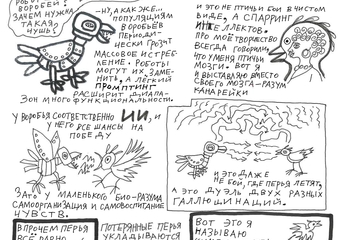 РОБО
ВОРОБЕЙ!
ЗАЧЕМ НУЖНА
ТАКАЯ
ЧУШЬ?
-НУ, А КАК ЖЕ...
ПОПУЛЯЦИЯМ
ВОРОБЬЁВ
ПЕРИОДИ-
ЧЕСКИ ГРОЗИТ
МАССОВОЕ ИСТРЕБ-
ЛЕНИЕ. РОБОТЫ
МОГУТ ИХ ЗАМЕ-
НИТЬ, А ЛЁГКИЙ
ПРОМПТИНГ
РАСШИРИТ ДИАПА-
ЗОН МНОГОФУНКЦИОНАЛЬНОСТИ.
И ЭТО НЕ ПТИЧЬИ БОИ В ЧИСТОМ
ВИДЕ, А СПАРРИНГ
ИНТЕЛЛЕКТОВ.
ПРО МОЁ ТВОРЧЕСТВО
ВСЕГДА ГОВОРИЛИ,
ЧТО У МЕНЯ ПТИЧЬИ
МОЗГИ. ВОТ Я
И ВЫСТАВЛЯЮ ВМЕСТО
СВОЕГО МОЗГА - РАЗУМ
КАНАРЕЙКИ
У ВОРОБЬЯ СООТВЕТСТВЕННО ИИ, И
У НЕГО ВСЕ ШАНСЫ НА
ПОБЕДУ
ЗАТО У МАЛЕНЬКОГО БИО-РАЗУМА
САМООРГАНИЗАЦИЯ И САМОВОСПИТАНИЕ
ЧУВСТВ.
И ЭТО ДАЖЕ
НЕ БОЙ, ГДЕ ПЕРЬЯ ЛЕТЯТ,
А ЭТО ДУЭЛЬ ДВУХ РАЗНЫХ
ГАЛЛЮЦИНАЦИЙ.
ВПРОЧЕМ ПЕРЬЯ
ВСЁ РАВНО
ПОТЕРЯННЫЕ ПЕРЬЯ
УКЛАДЫВАЮТСЯ
ВОТ ЭТО Я
НАЗЫВАЮ